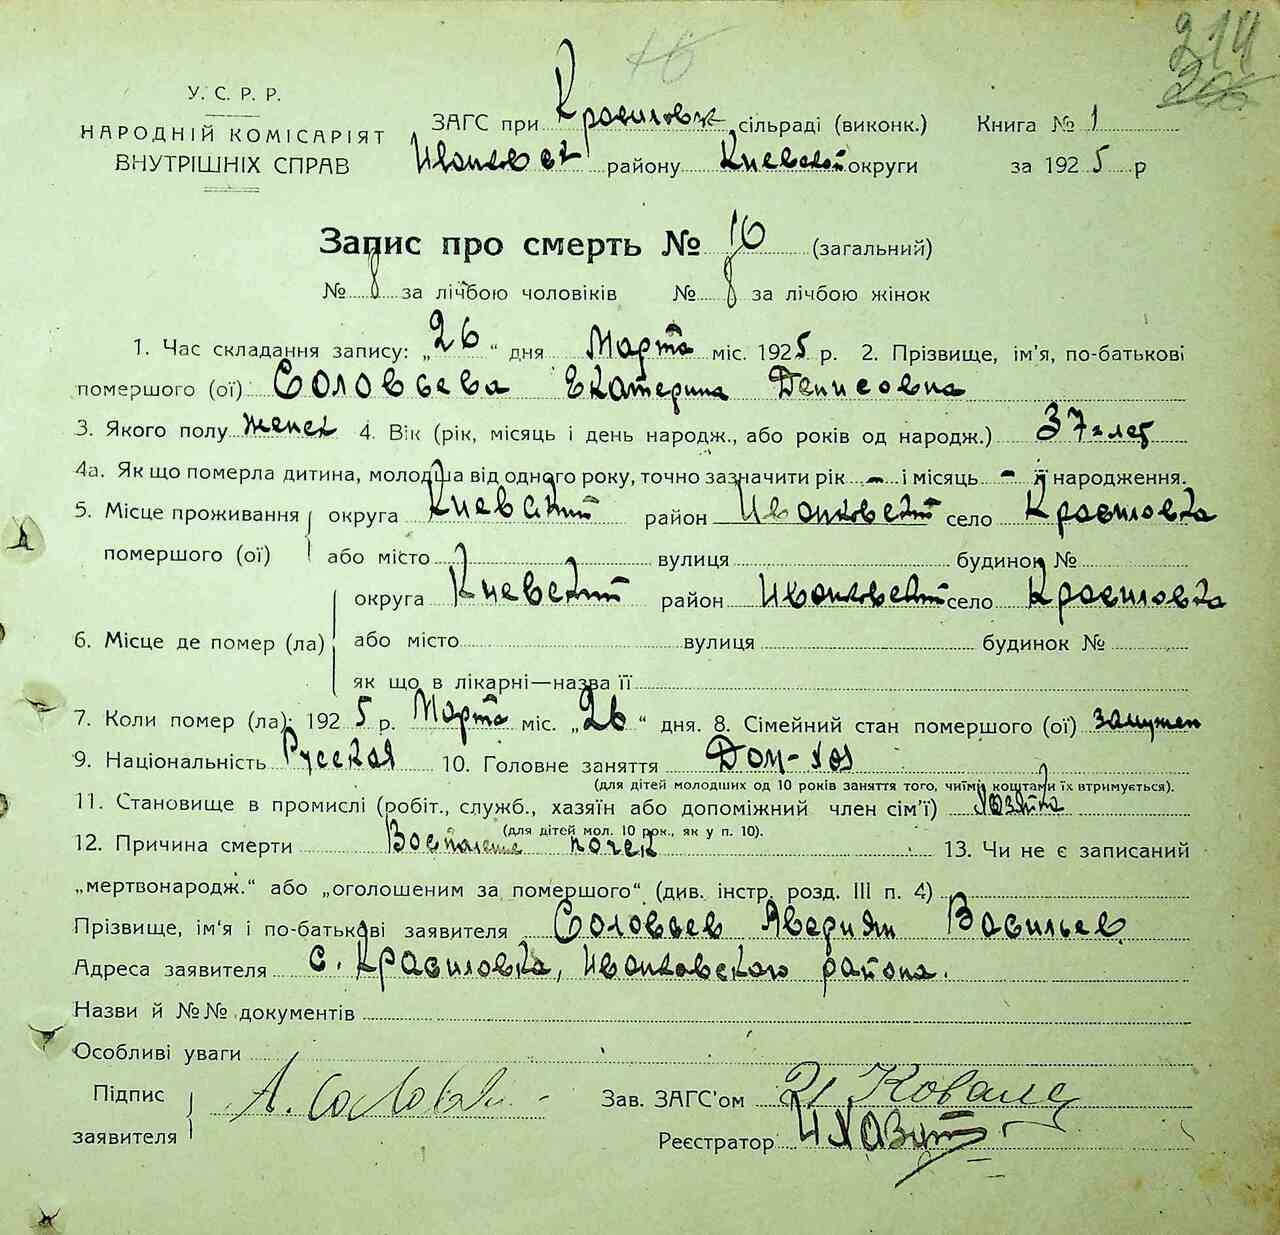 16
214
206
У. С. Р. Р.
НАРОДНІЙ КОМІСАРІЯТ
ВНУТРІШНІХ СПРАВ
ЗАГС при Красиловк сільраді (виконк.) Книга № 1
Иванков району Киевской округи за 1925 р
Запис про смерть № 16 (загальний)
№ 8 за лічбою чоловіків № 8 за лічбою жінок
1. Час складання запису: „26“ дня Марта міс. 1925 р. 2. Прізвище, ім'я, по-батькові
помершого (ої) Соловьева Екатерина Денисовна
3. Якого полу женск 4. Вік (рік, місяць і день народж., або років од народж.) 37 лет
4а. Як що померла дитина, молодша від одного року, точно зазначити рік - і місяць - її народження.
5. Місце проживання помершого (ої) округа Киевский район Иванковский село Красиловка
або місто вулиця будинок №
6. Місце де помер (ла) округа Киевский район Иванковский село Красиловка
або місто вулиця будинок №
як що в лікарні—назва її
7. Коли помер (ла): 1925 р. Марта міс. „26“ дня. 8. Сімейний стан помершого (ої) замужен
9. Національність Русская 10. Головне заняття Дом-хоз
(для дітей молодших од 10 років заняття того, чиїми коштами їх втримується).
11. Становище в промислі (робіт., служб., хазяїн або допоміжний член сім'ї) Хозяйка
(для дітей мол. 10 рок., як у п. 10).
12. Причина смерти Воспаление почек 13. Чи не є записаний
„мертвонародж.“ або „оголошеним за помершого“ (див. інстр. розд. III п. 4)
Прізвище, ім'я і по-батькові заявителя Соловьев Авериян Васильев
Адреса заявителя с. Красиловка, Иванковского района.
Назви й №№ документів
Особливі уваги
Підпис заявителя А. Соловьев
Зав. ЗАГС'ом Коваль
Реєстратор